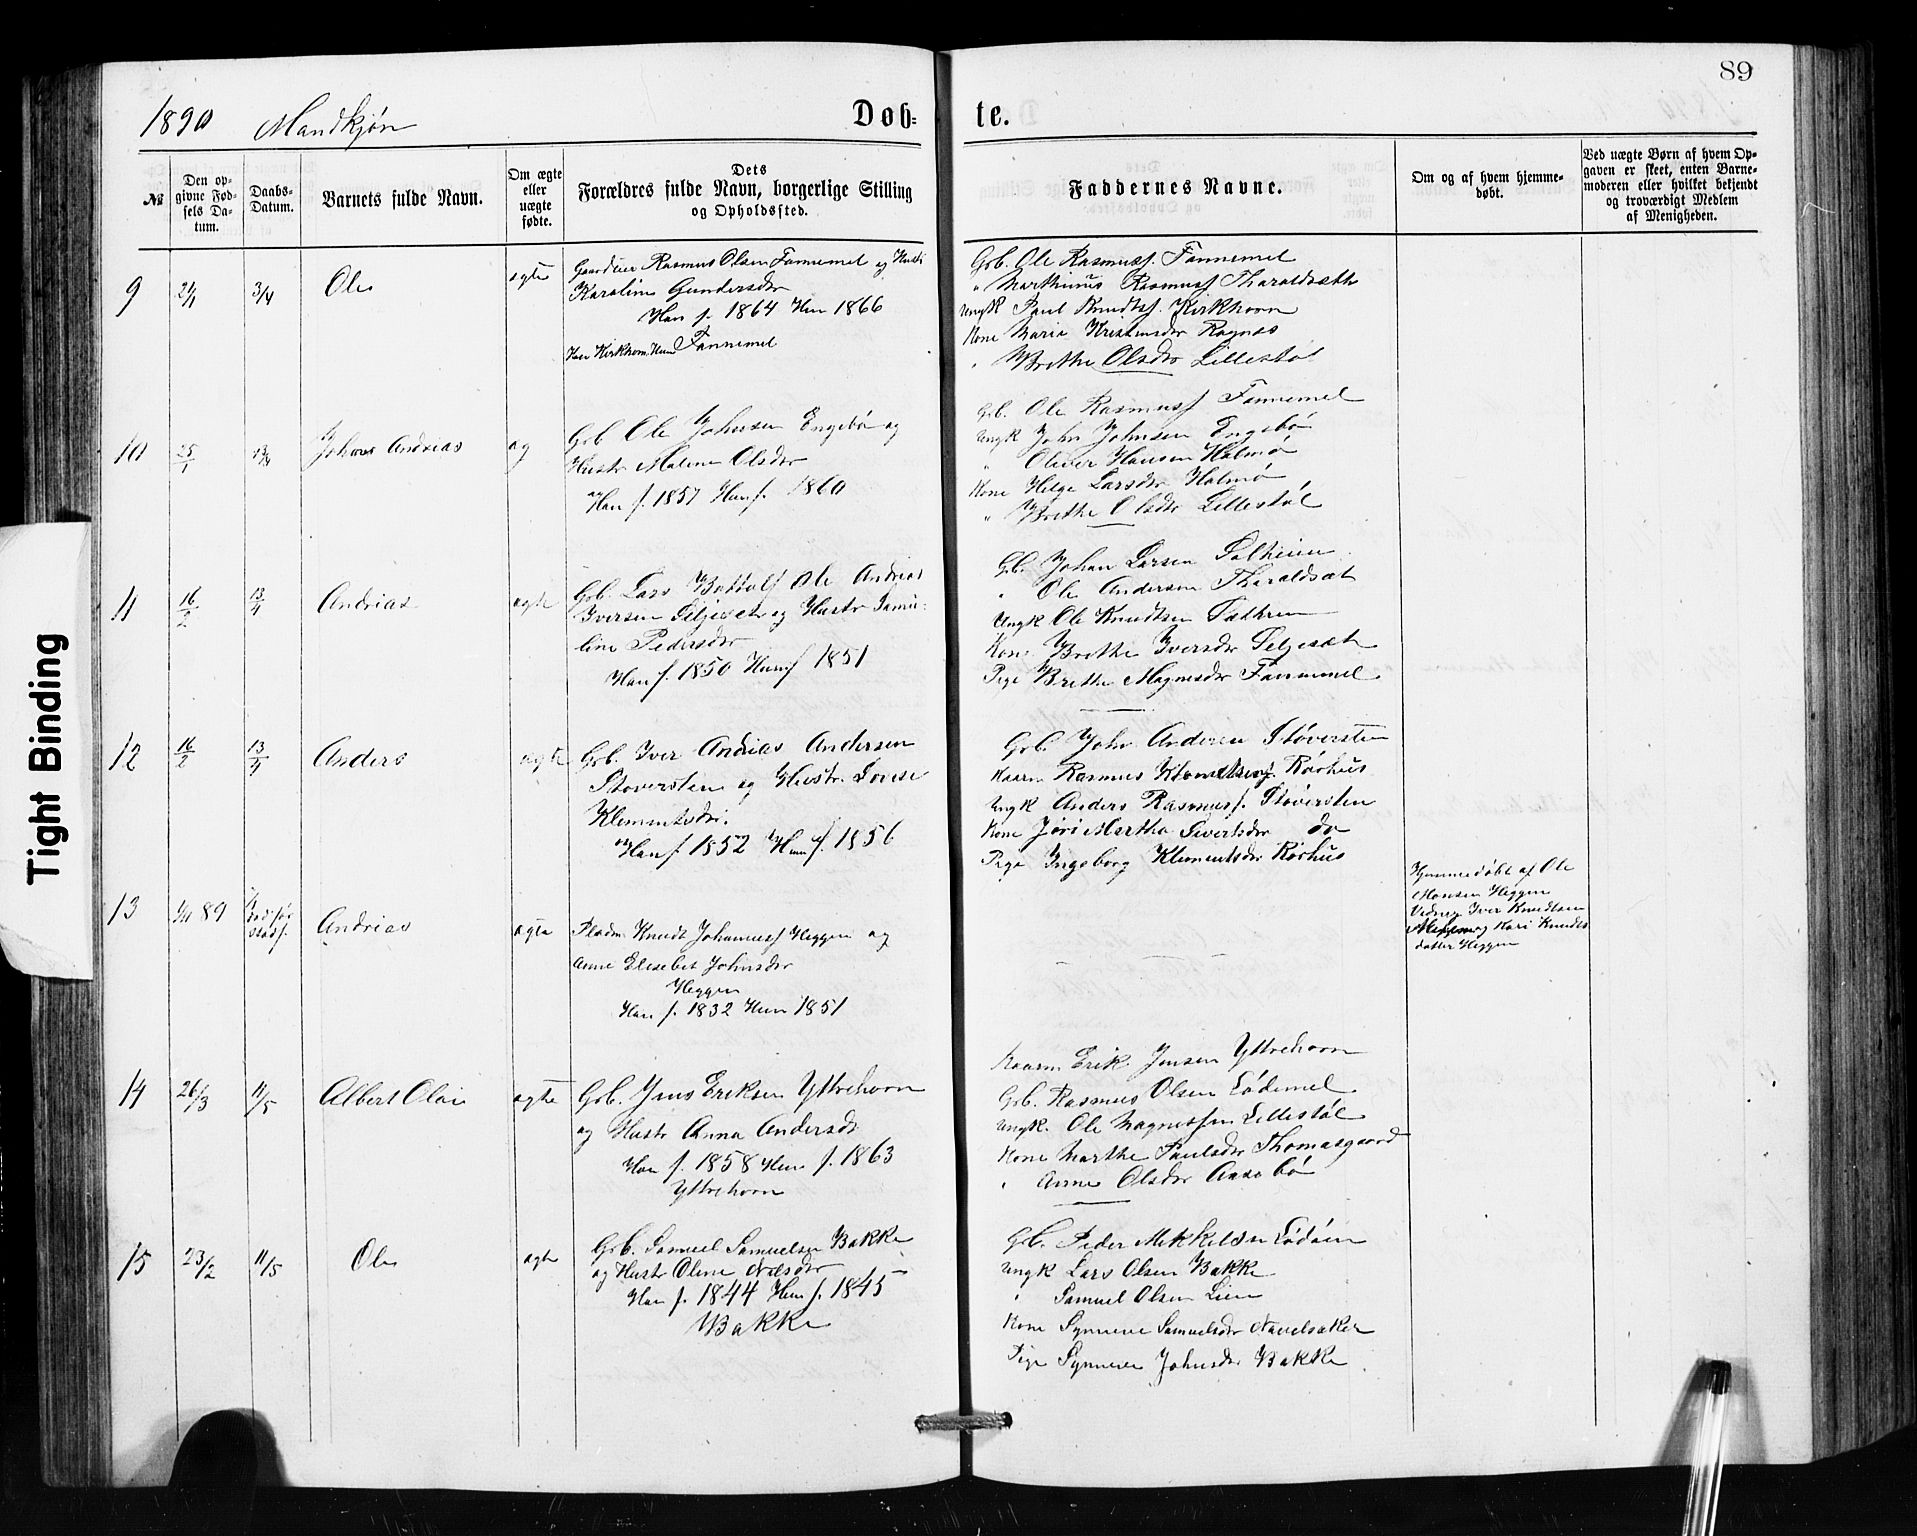 89
1890 Mandkjøn
Døb-
te.
№
Den opgivne Fødsels Datum.
Daabs-Datum.
Barnets fulde Navn.
Om ægte eller uægte fødte.
Dets Forældres fulde Navn, borgerlige Stilling og Opholdssted.
Faddernes Navne.
Om og af hvem hjemmedøbt.
Ved uægte Børn af hvem Opgaven er skeet, enten Barnemoderen eller hvilket bekjendt og troværdigt Medlem af Menigheden.
9
3/4
Ole
ægte
Gaardeier Rasmus Olsen Fannemel og Hustr
Karoline Gundersdr
Han f. 1864 Hun 1866
Han Kirkhorn Hun Fannemel
Grb. Ole Rasmusf. Fannemel
" Marthinus Rasmusf Tharaldsæth
Ungk Paul Knudtsf. Kirkhorn
Kone Marie Kristensdr Ragnes
" Brithe Olsdr Lillestøl
10
25/1
13/4
Johan Andreas
æg
Grb Ole Johnsen Engebø og
Hustr Malene Olsdr
Han f. 1857 Hun f. 1860
Grb. Ole Rasmusf Fannemel
Ungk John Johnsen Engebø
" Oliver Hansen Halmø
Kone Helge Larsdr Halmø
" Brithe Olsdr Lillestøl
11
16/2
13/4
Andrias
ægte
Grb. Lars Bottolf Ole Andrias
Iversen Seljeset og Hustr Samu-
line Pedersdr
Han f. 1850 Hun f 1851
Gb. Johan Larsen Solheim
" Ole Andersen Tharaldsæt
Ungk Ole Knudtsen Sæthren
Kone Brithe Iversdr Seljesæt
Pige Brithe Magnesdr Fannemel
12
16/2
13/4
Anders
ægte
Grb. Iver Andrias Andersen
Støversten og Hustr. Lovise
Klementsdr.
Han f 1852 Hun f. 1856
Grb. John Andersen Støversten
Kaarm Rasmus Klementsen Rørhus
Ungk Anders Rasmusf. Støversten
Kone Jøri Martha Sivertsdr do
Pige Ingeborg Klementsdr Rørhus
13
89
Andrias
ægte
Pladm Knudt Johannesf Heggen og
Anne Elisebet Johnsdr
Heggen
Han f. 1832 Hun 1851
Hjemmedøbt af Ole
Monsen Heggen
Vidner Iver Knudtsen
Heggen og Kari Knudts
datter Heggen
14
26/3
11/5
Albert Olai
ægte
Grb. Jens Eriksen Yttrehorn
og Hustr Anna Andersdr
Han f. 1858 Hun f. 1863
Yttrehorn
Kaarm Erik Jensen Yttrehorn
Grb. Rasmus Olsen Lødemel
Ungk. Ole Magnussen Lillestøl
Kone Marthe Paulsdr Thomasgaard
" Anne Olsdr Aasebø
15
23/2
11/5
Ole
ægte
Grb. Samuel Samuelsen Bakke
og Hustr Oline Nilsdr
Han f. 1844 Hun f. 1845
Bakke
Grb. Peder Mikkelsen Lødøen
Ungk Lars Olsen Bakke
" Samuel Olsen Lien
Kone Synneve Samuelsdr Navelsaker
Pige Synneve Johnsdr Bakke
Tight Binding